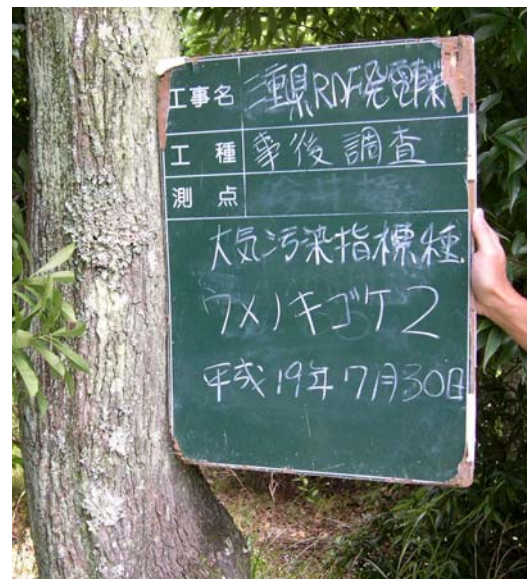 工事名 三重県RDF発電
工種 事後調査
測点
大気汚染指標種
ウメノキゴケ2
平成19年7月30日